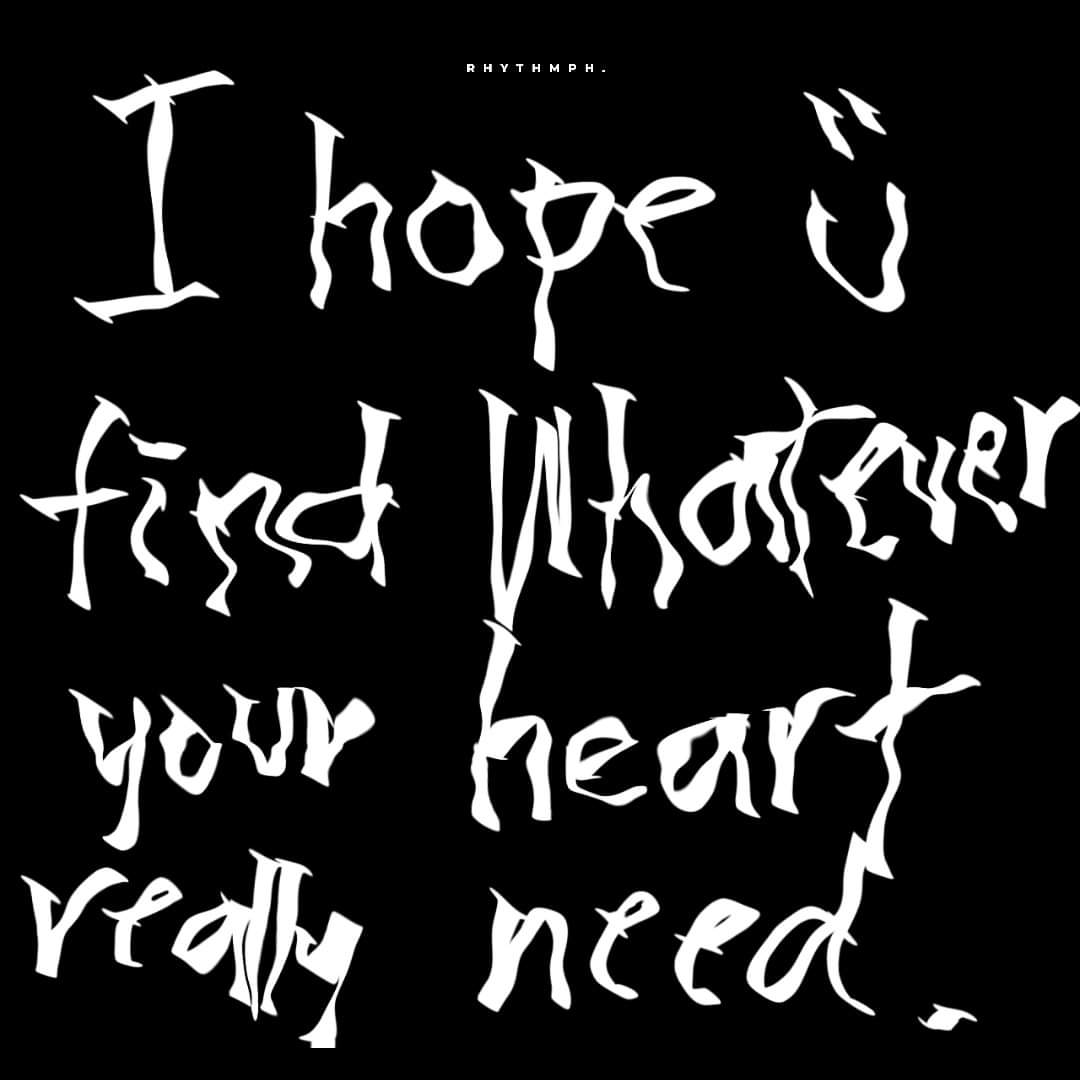 RHYTHMPH.
I hope ü
find Whatever
your heart
really need.